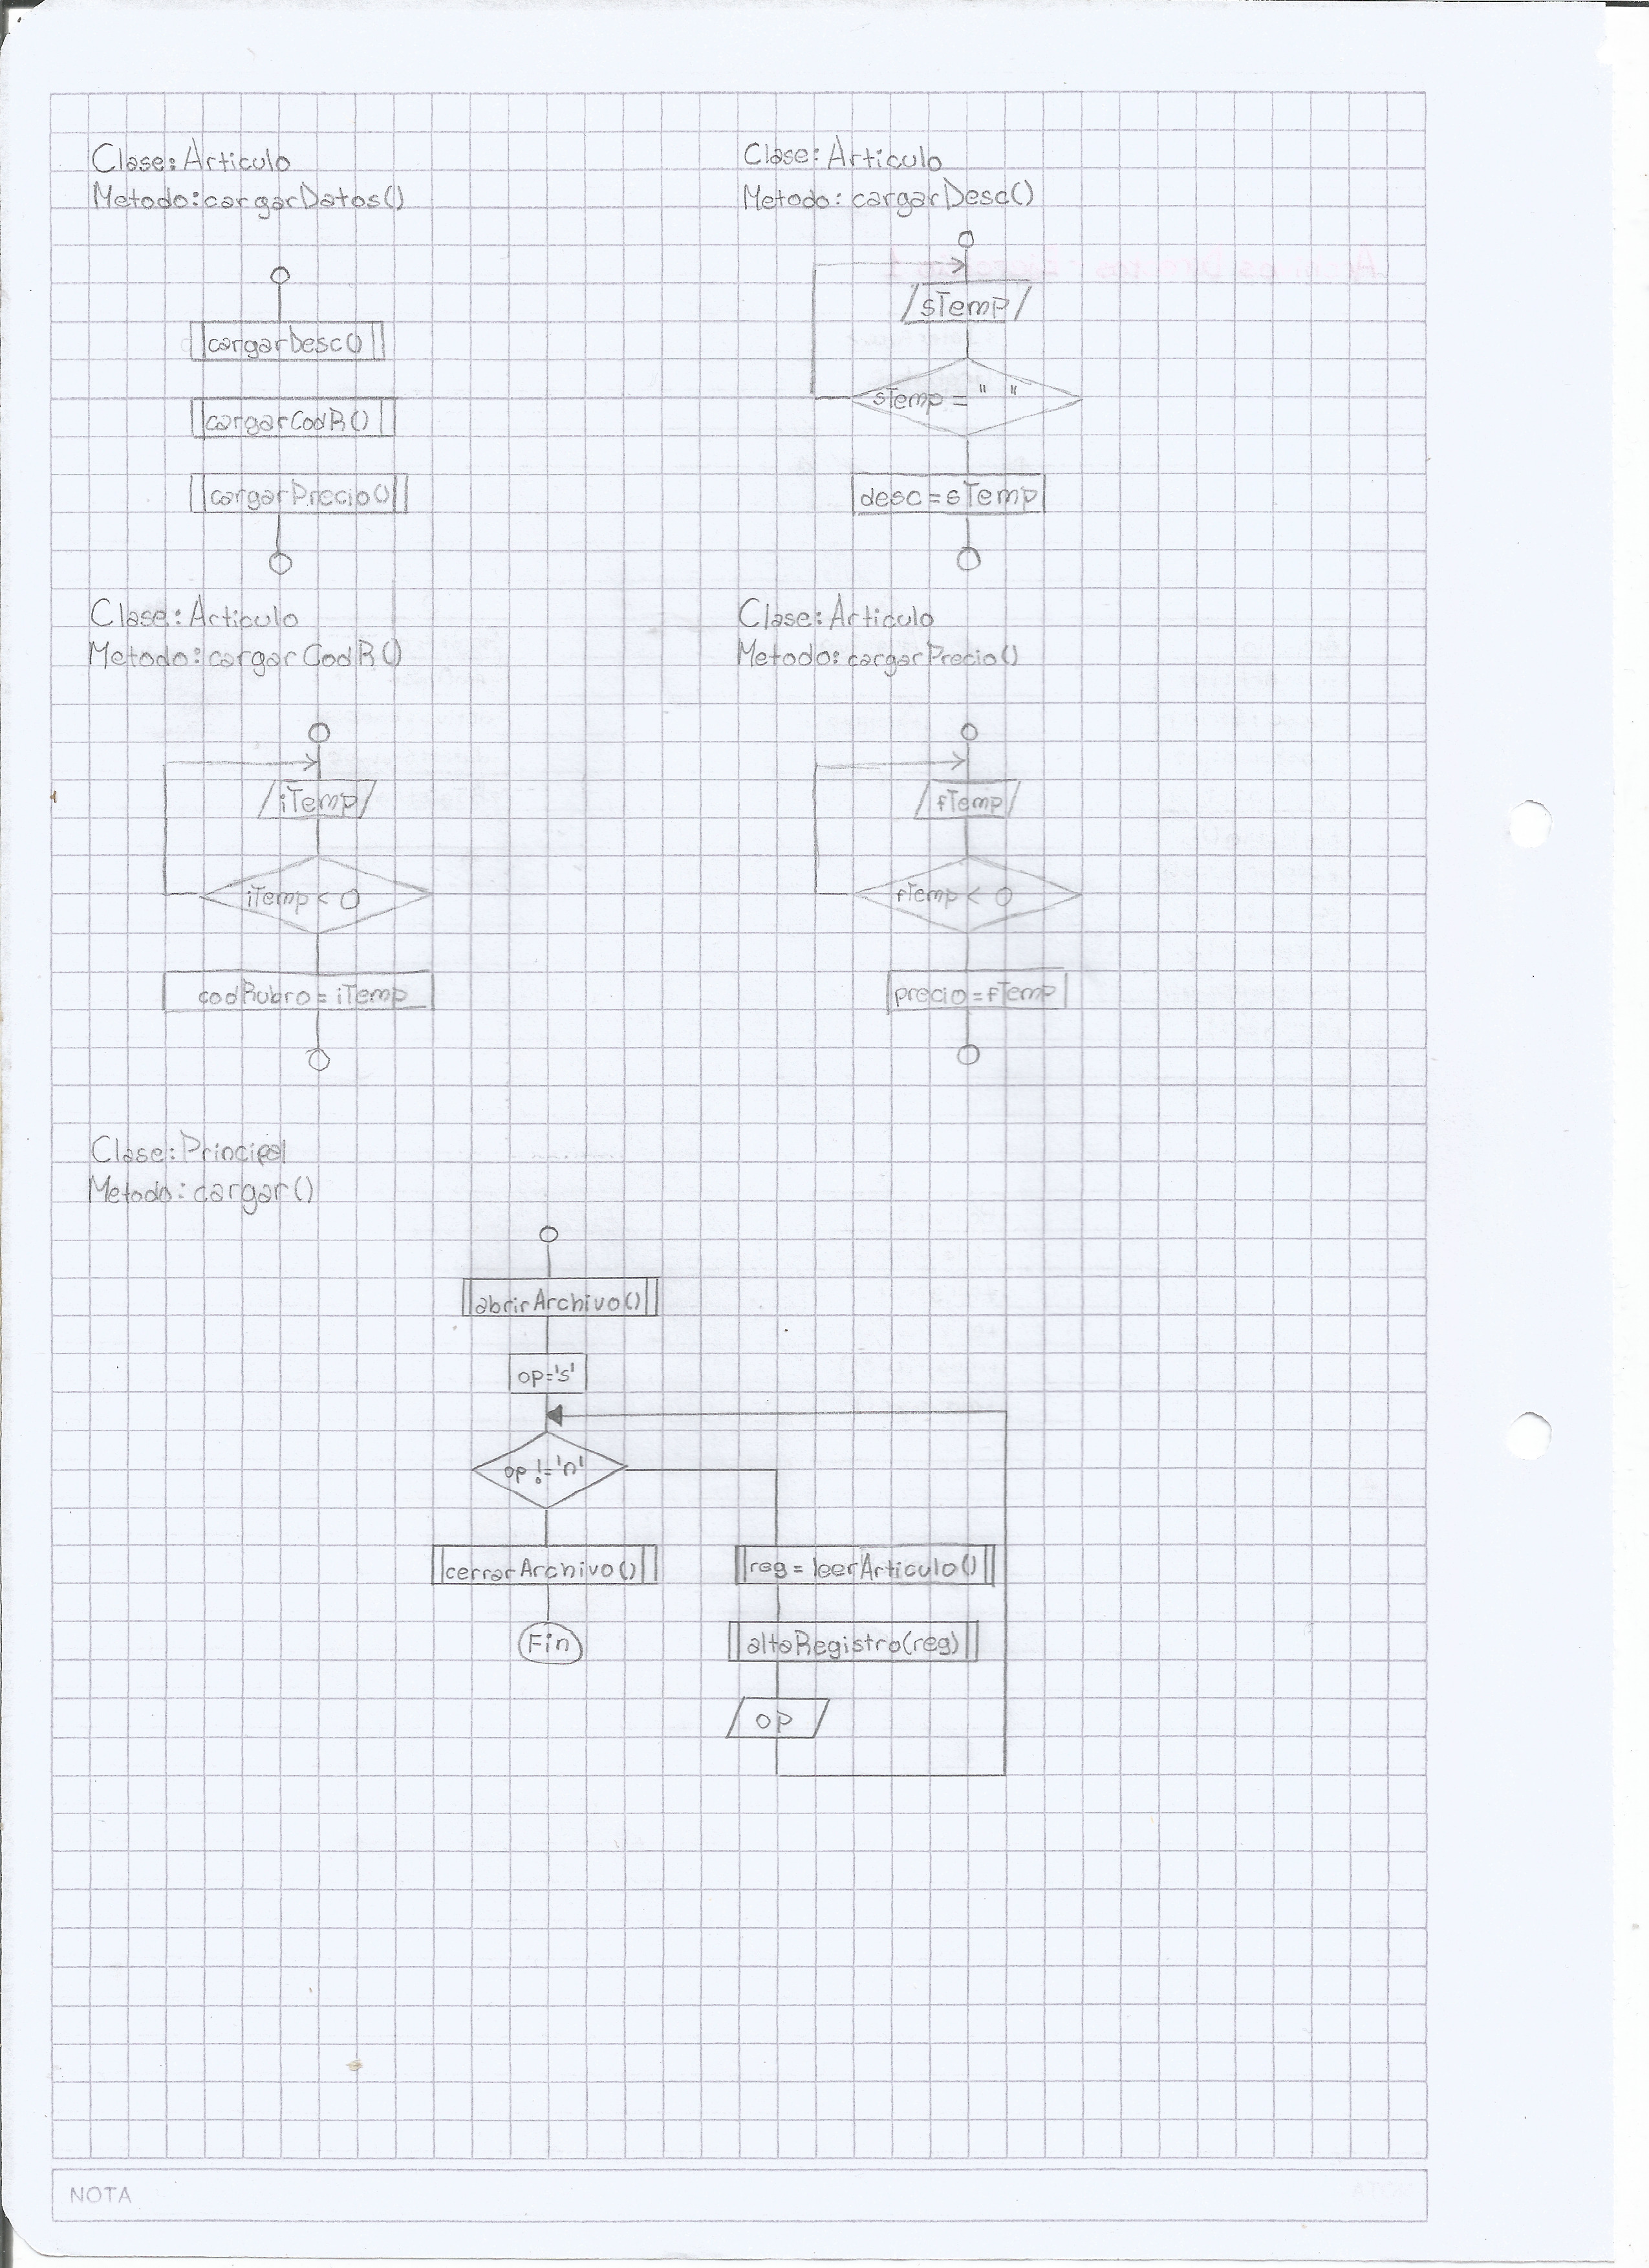 Clase: Articulo
Metodo: cargarDatos()
cargarDesc()
cargarCodR()
cargarPrecio()
Clase: Articulo
Metodo: cargarDesc()
sTemp
sTemp = " "
desc = sTemp
Clase: Articulo
Metodo: cargarCodR()
iTemp
iTemp < 0
codRubro = iTemp
Clase: Articulo
Metodo: cargarPrecio()
fTemp
fTemp < 0
precio = fTemp
Clase: Principal
Metodo: cargar()
abrirArchivo()
op='s'
op != 'n'
cerrarArchivo()
Fin
reg = leerArticulo()
altaRegistro(reg)
op
NOTA